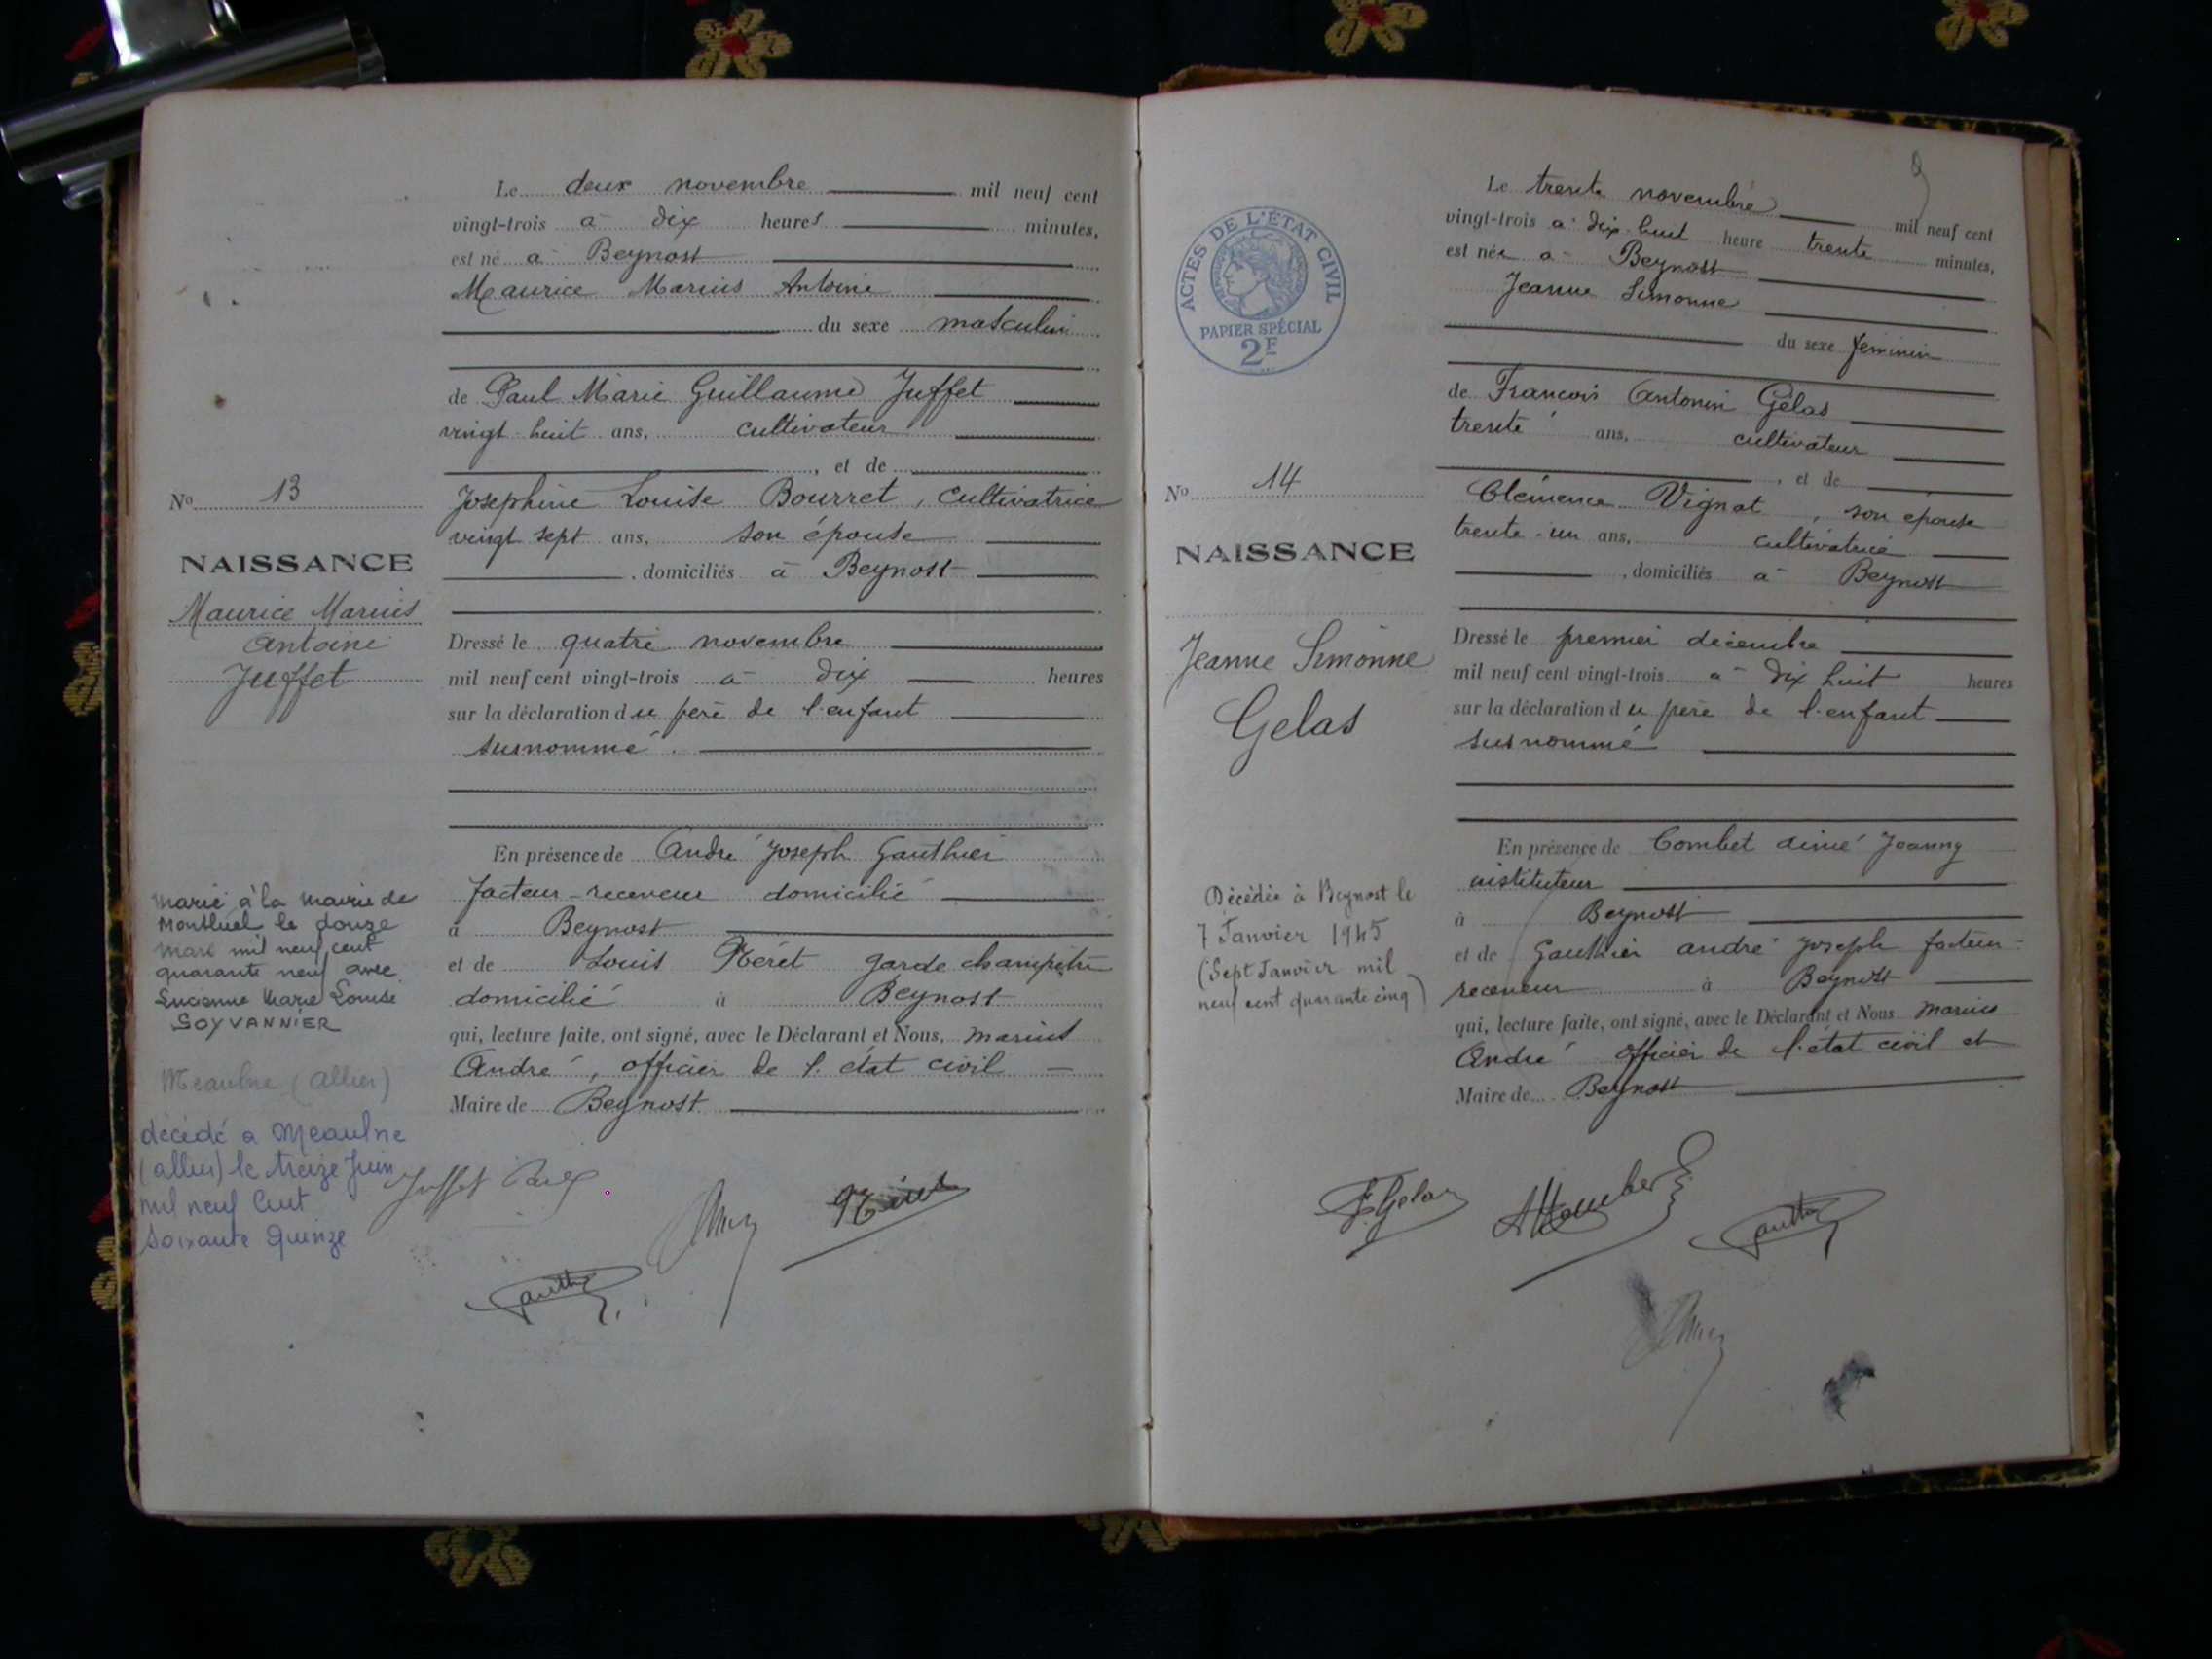 Le deux novembre mil neuf cent
vingt-trois à dix heures minutes,
est né à Beynost
Maurice Marius Antoine
du sexe masculin
de Paul Marie Guillaume Juffet
vingt huit ans, cultivateur
, et de
Josephine Louise Bourret, cultivatrice
vingt sept ans, son épouse
, domiciliés à Beynost
Dressé le quatre novembre
mil neuf cent vingt-trois à dix heures
sur la déclaration du père de l'enfant
susnommé.
En présence de André Joseph Gauthier
facteur-receveur domicilié
à Beynost
et de Louis garde champêtre
domicilié à Beynost
qui, lecture faite, ont signé, avec le Déclarant et Nous, Marius
André, officier de l'état civil
Maire de Beynost
No 13
NAISSANCE
Maurice Marius
Antoine
Juffet
Marié à la Mairie de
Montluel le douze
Mars mil neuf cent
quarante neuf avec
Lucienne Marie Louise
GOYVANNIER
Meaulne (Allier)
décédé à Meaulne
(allier) le treize Juin
mil neuf cent
soixante quinze
Juffet Paul
9
ACTES DE L'ÉTAT CIVIL
PAPIER SPÉCIAL
2F
Le trente novembre mil neuf cent
vingt-trois à dix-huit heure trente minutes,
est née à Beynost
Jeanne Simonne
du sexe feminin
de François Antonin Gélas
trente ans, cultivateur
, et de
Clémence Vignat, son épouse
trente-un ans, cultivatrice
, domiciliés à Beynost
Dressé le premier décembre
mil neuf cent vingt-trois à dix huit heures
sur la déclaration du père de l'enfant
susnommé
En présence de Combet aimé Joanny
instituteur
à Beynost
et de Gauthier andré Joseph facteur-
receveur à Beynost
qui, lecture faite, ont signé, avec le Déclarant et Nous Marius
André officier de l'état civil et
Maire de Beynost
No 14
NAISSANCE
Jeanne Simonne
Gelas
Décédée à Beynost le
7 Janvier 1945
(Sept Janvier mil
neuf cent quarante cinq)
F. Gelas